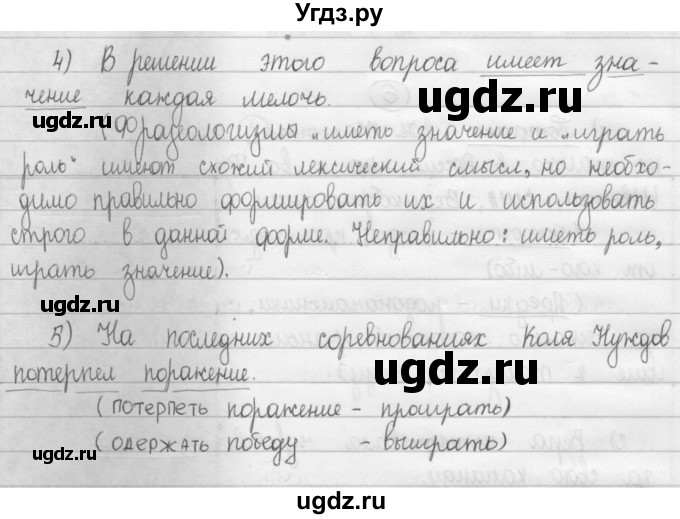 Угдз.ру
4) В решении этого вопроса имеет зна-
чение каждая мелочь.
ugdz.ru
(Фразеологизмы „иметь значение и „играть
роль" имеют схожий лексический смысл, но необхо-
димо правильно формировать их и использовать
строго в данной форме. Неправильно: иметь роль,
играть значение).
ugdz.ru
5) На последних соревнованиях Коля Нуждов
потерпел поражение.
ugdz.ru
(потерпеть поражение - проиграть)
(одержать победу - выиграть)
ugdz.ru
ugdz.ru